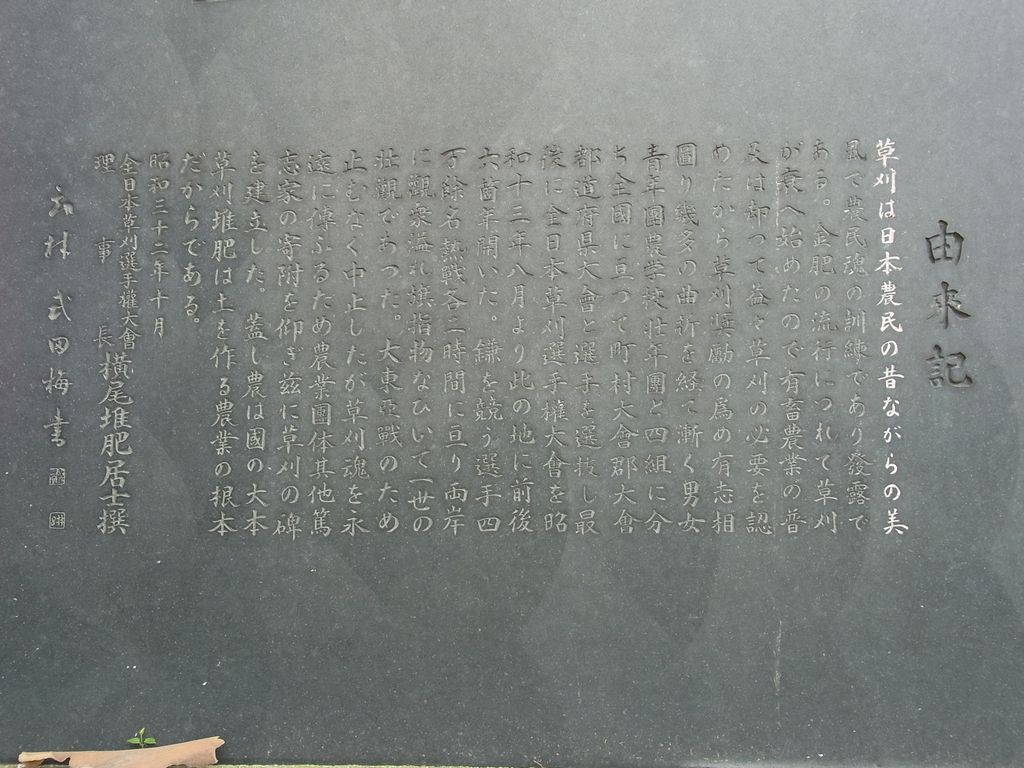 由来記
草刈は日本農民の昔ながらの美
風で農民魂の訓練であり發露で
ある。金肥の流行につれて草刈
が衰へ始めたので有畜農業の普
及は却つて益々草刈の必要を認
めたから草刈奨勵の為め有志相
圖り幾多の曲折を経て漸く男女
青年團農学校壮年團と四組に分
ち全國に亘つて町村大會郡大會
都道府県大會と選手を選抜し最
後に全日本草刈選手權大會を昭
和十三年八月より此の地に前後
六箇年開いた。鎌を競う選手四
万餘名熱戰各二時間に亘り両岸
に觀衆溢れ旗指物なびいて一世の
壮觀であつた。大東亜戰のため
止むなく中止したが草刈魂を永
遠に傳ふるため農業團体其他篤
志家の寄附を仰ぎ茲に草刈の碑
を建立した。蓋し農は國の大本
草刈堆肥は土を作る農業の根本
だからである。
昭和三十二年十月
全日本草刈選手權大會
理事長 横尾堆肥居士撰
武田梅書